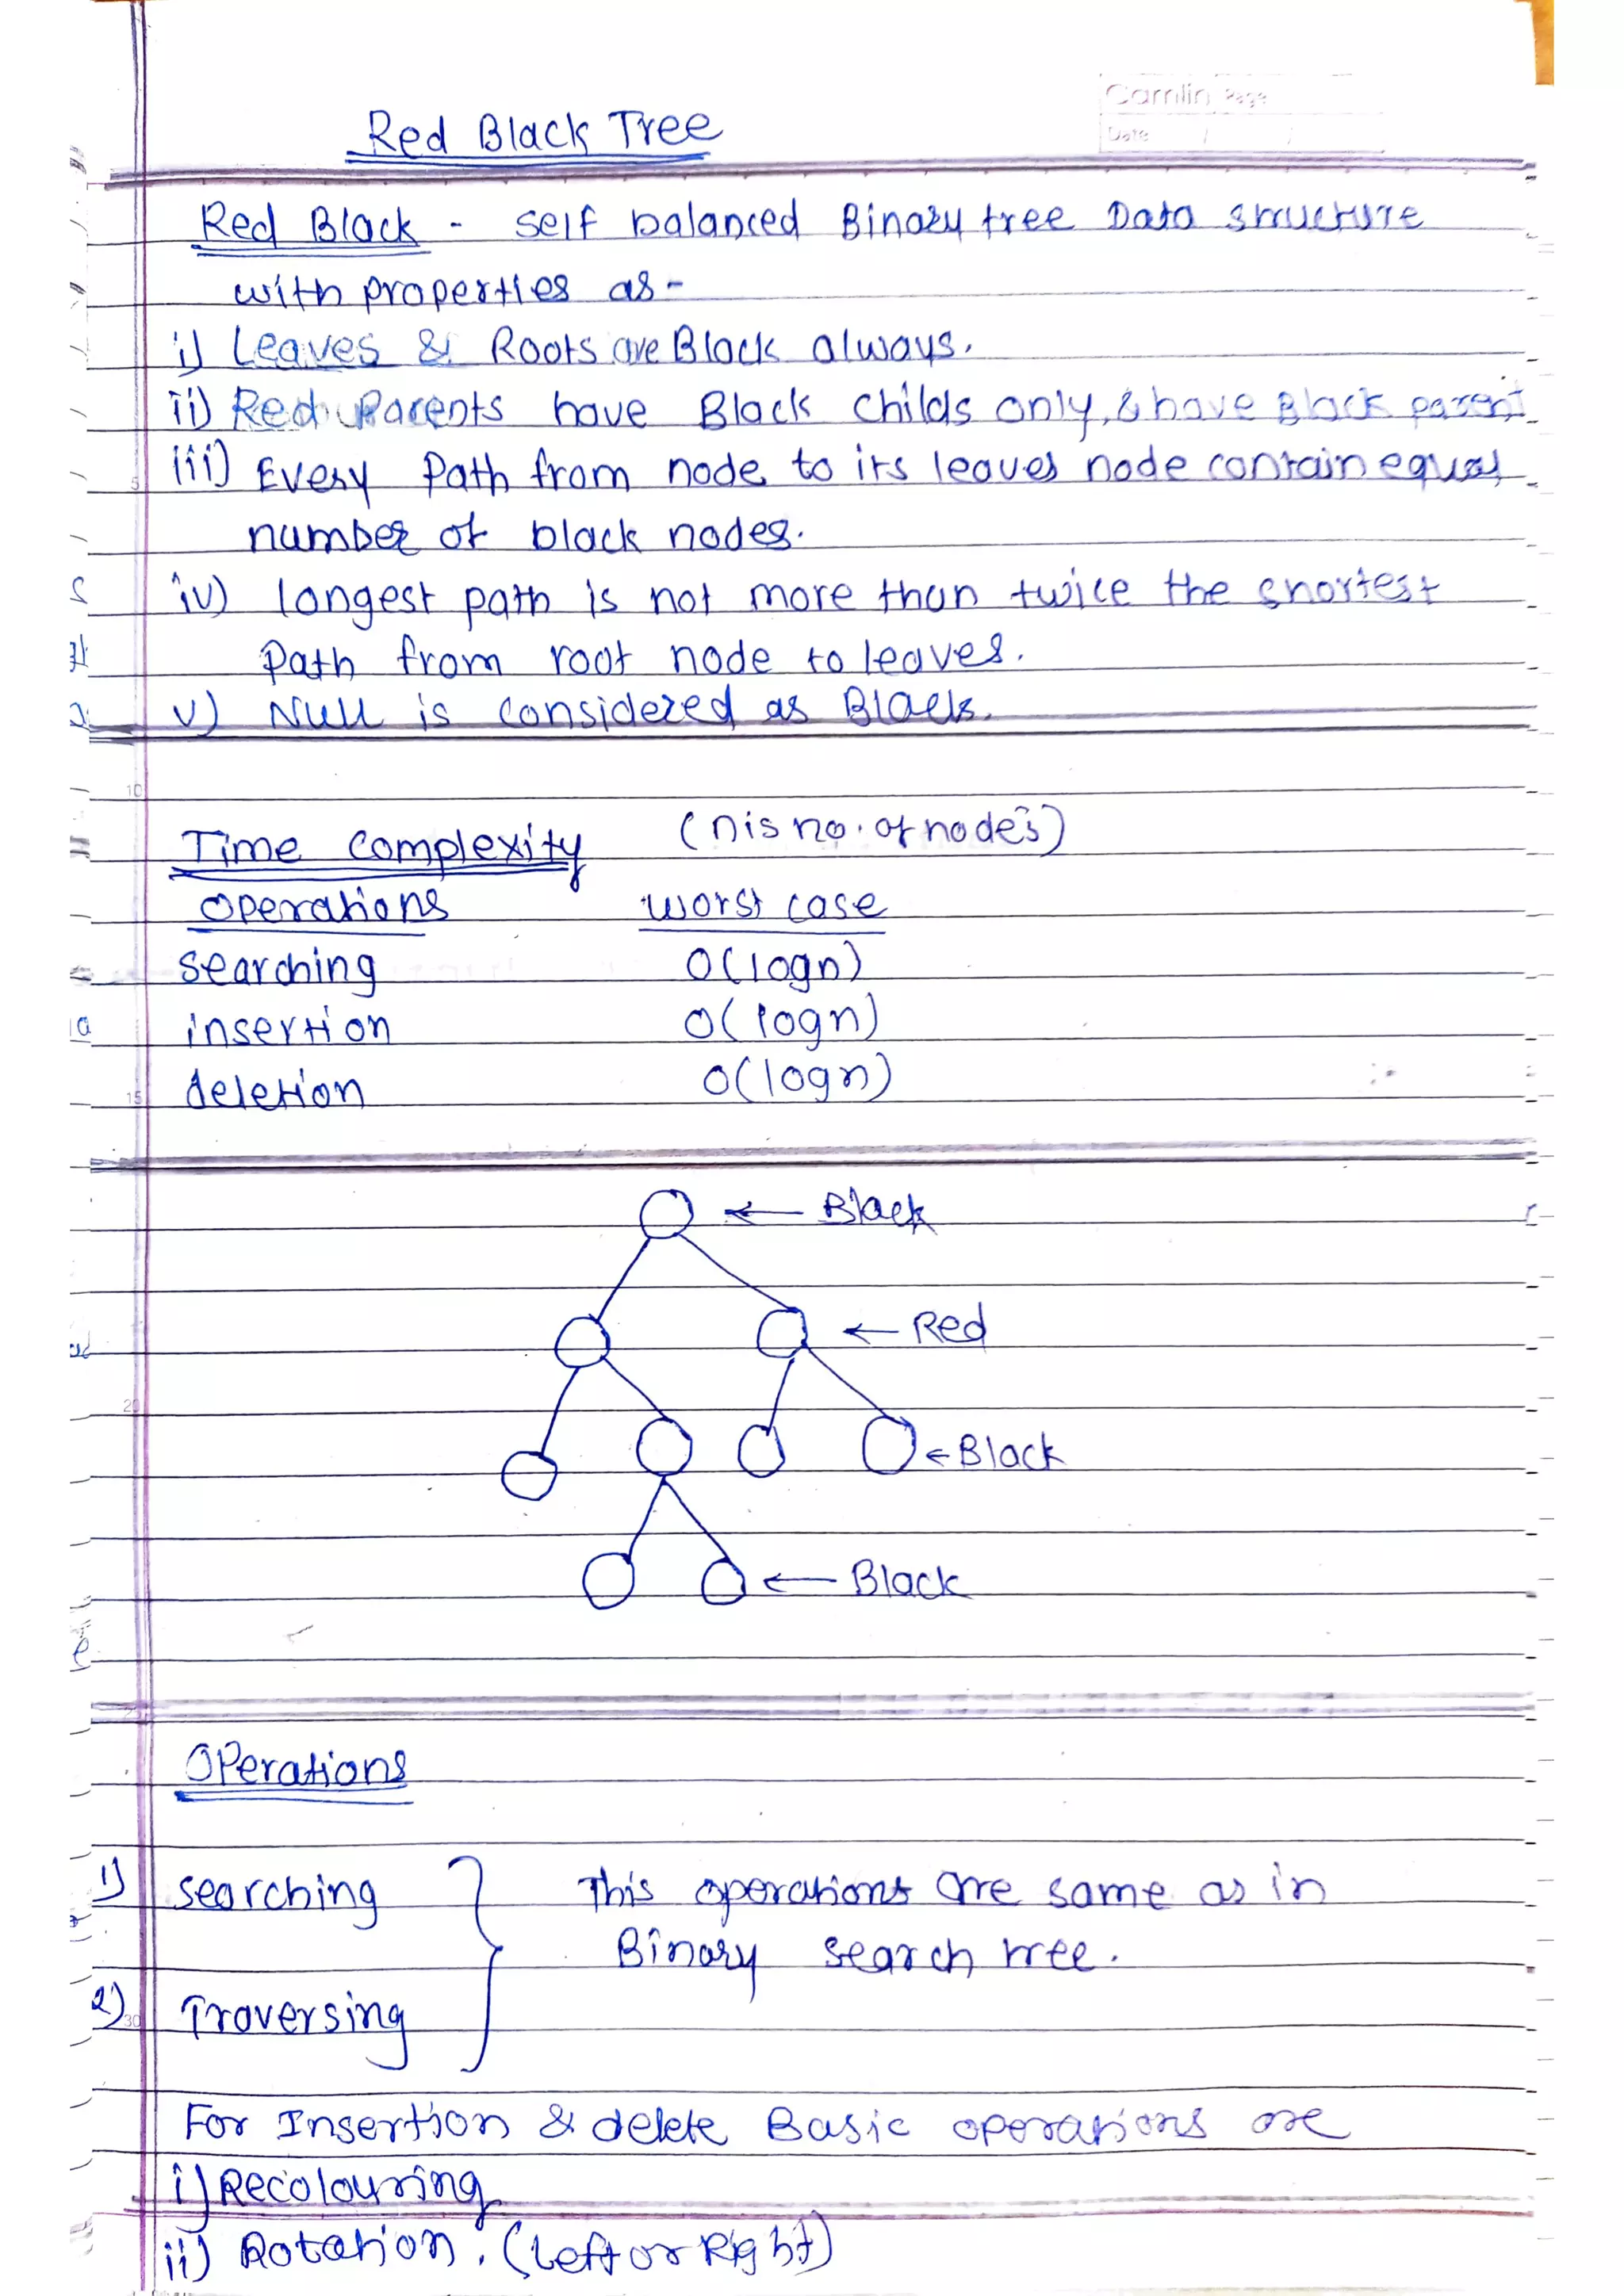 Camlin Page
Date / /
Red Black Tree
Red Black - self balanced Binary tree Data structure
with properties as -
i) Leaves & Roots are Black always.
ii) Red Parents have Black childs only, & have Black parent
iii) Every Path from node to its leaves node contain equal
5
number of black nodes.
iv) longest path is not more than twice the shortest
Path from root node to leaves.
v) Null is considered as Black.
10
Time Complexity (n is no. of nodes)
operations worst case
searching O(logn)
insertion O(logn)
deletion O(logn)
15
← Black
← Red
20
← Black
← Black
Operations
1) searching } This operations are same as in
Binary search tree.
2) Traversing
30
For Insertion & delete Basic operations are
i) Recolouring
ii) Rotation. (Left or Right)